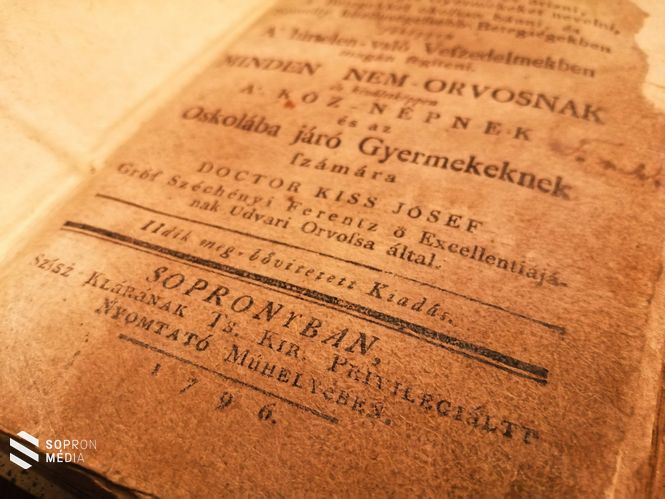 nevelni,
Betegségekben
A' hirtelen-való Veszedelmekben
magán segíteni.
MINDEN NEM-ORVOSNAK
és kiváltképpen
A' KÖZ-NÉPNEK
és az
Oskolába járó Gyermekeknek
ſzámára
DOCTOR KISS JÓSEF
Gróf Széchényi Ferentz ő Excellentiájá-
nak Udvari Orvoſsa által.
IIdik meg-bővíttetett Kiadás.
SOPRONYBAN,
Szisz KLÁRÁNAK Ts. KIR. PRIVILEGIÁLTT
NYOMTATÓ MŰHELYÉBEN.
1796.
SOPRON
MÉDIA